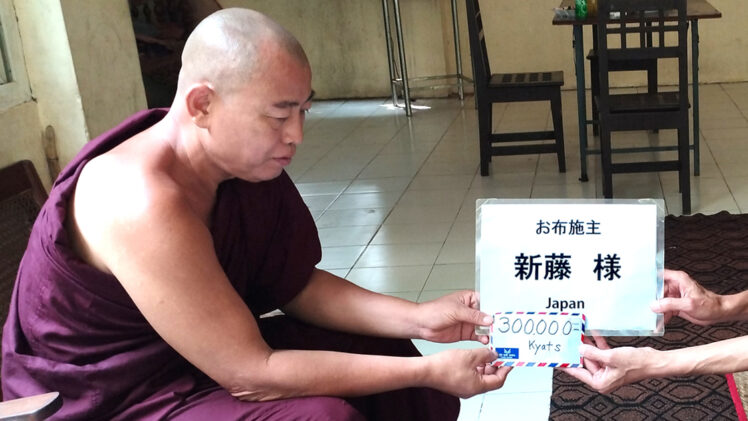 お布施主
新藤 様
Japan
300,000=
Kyats